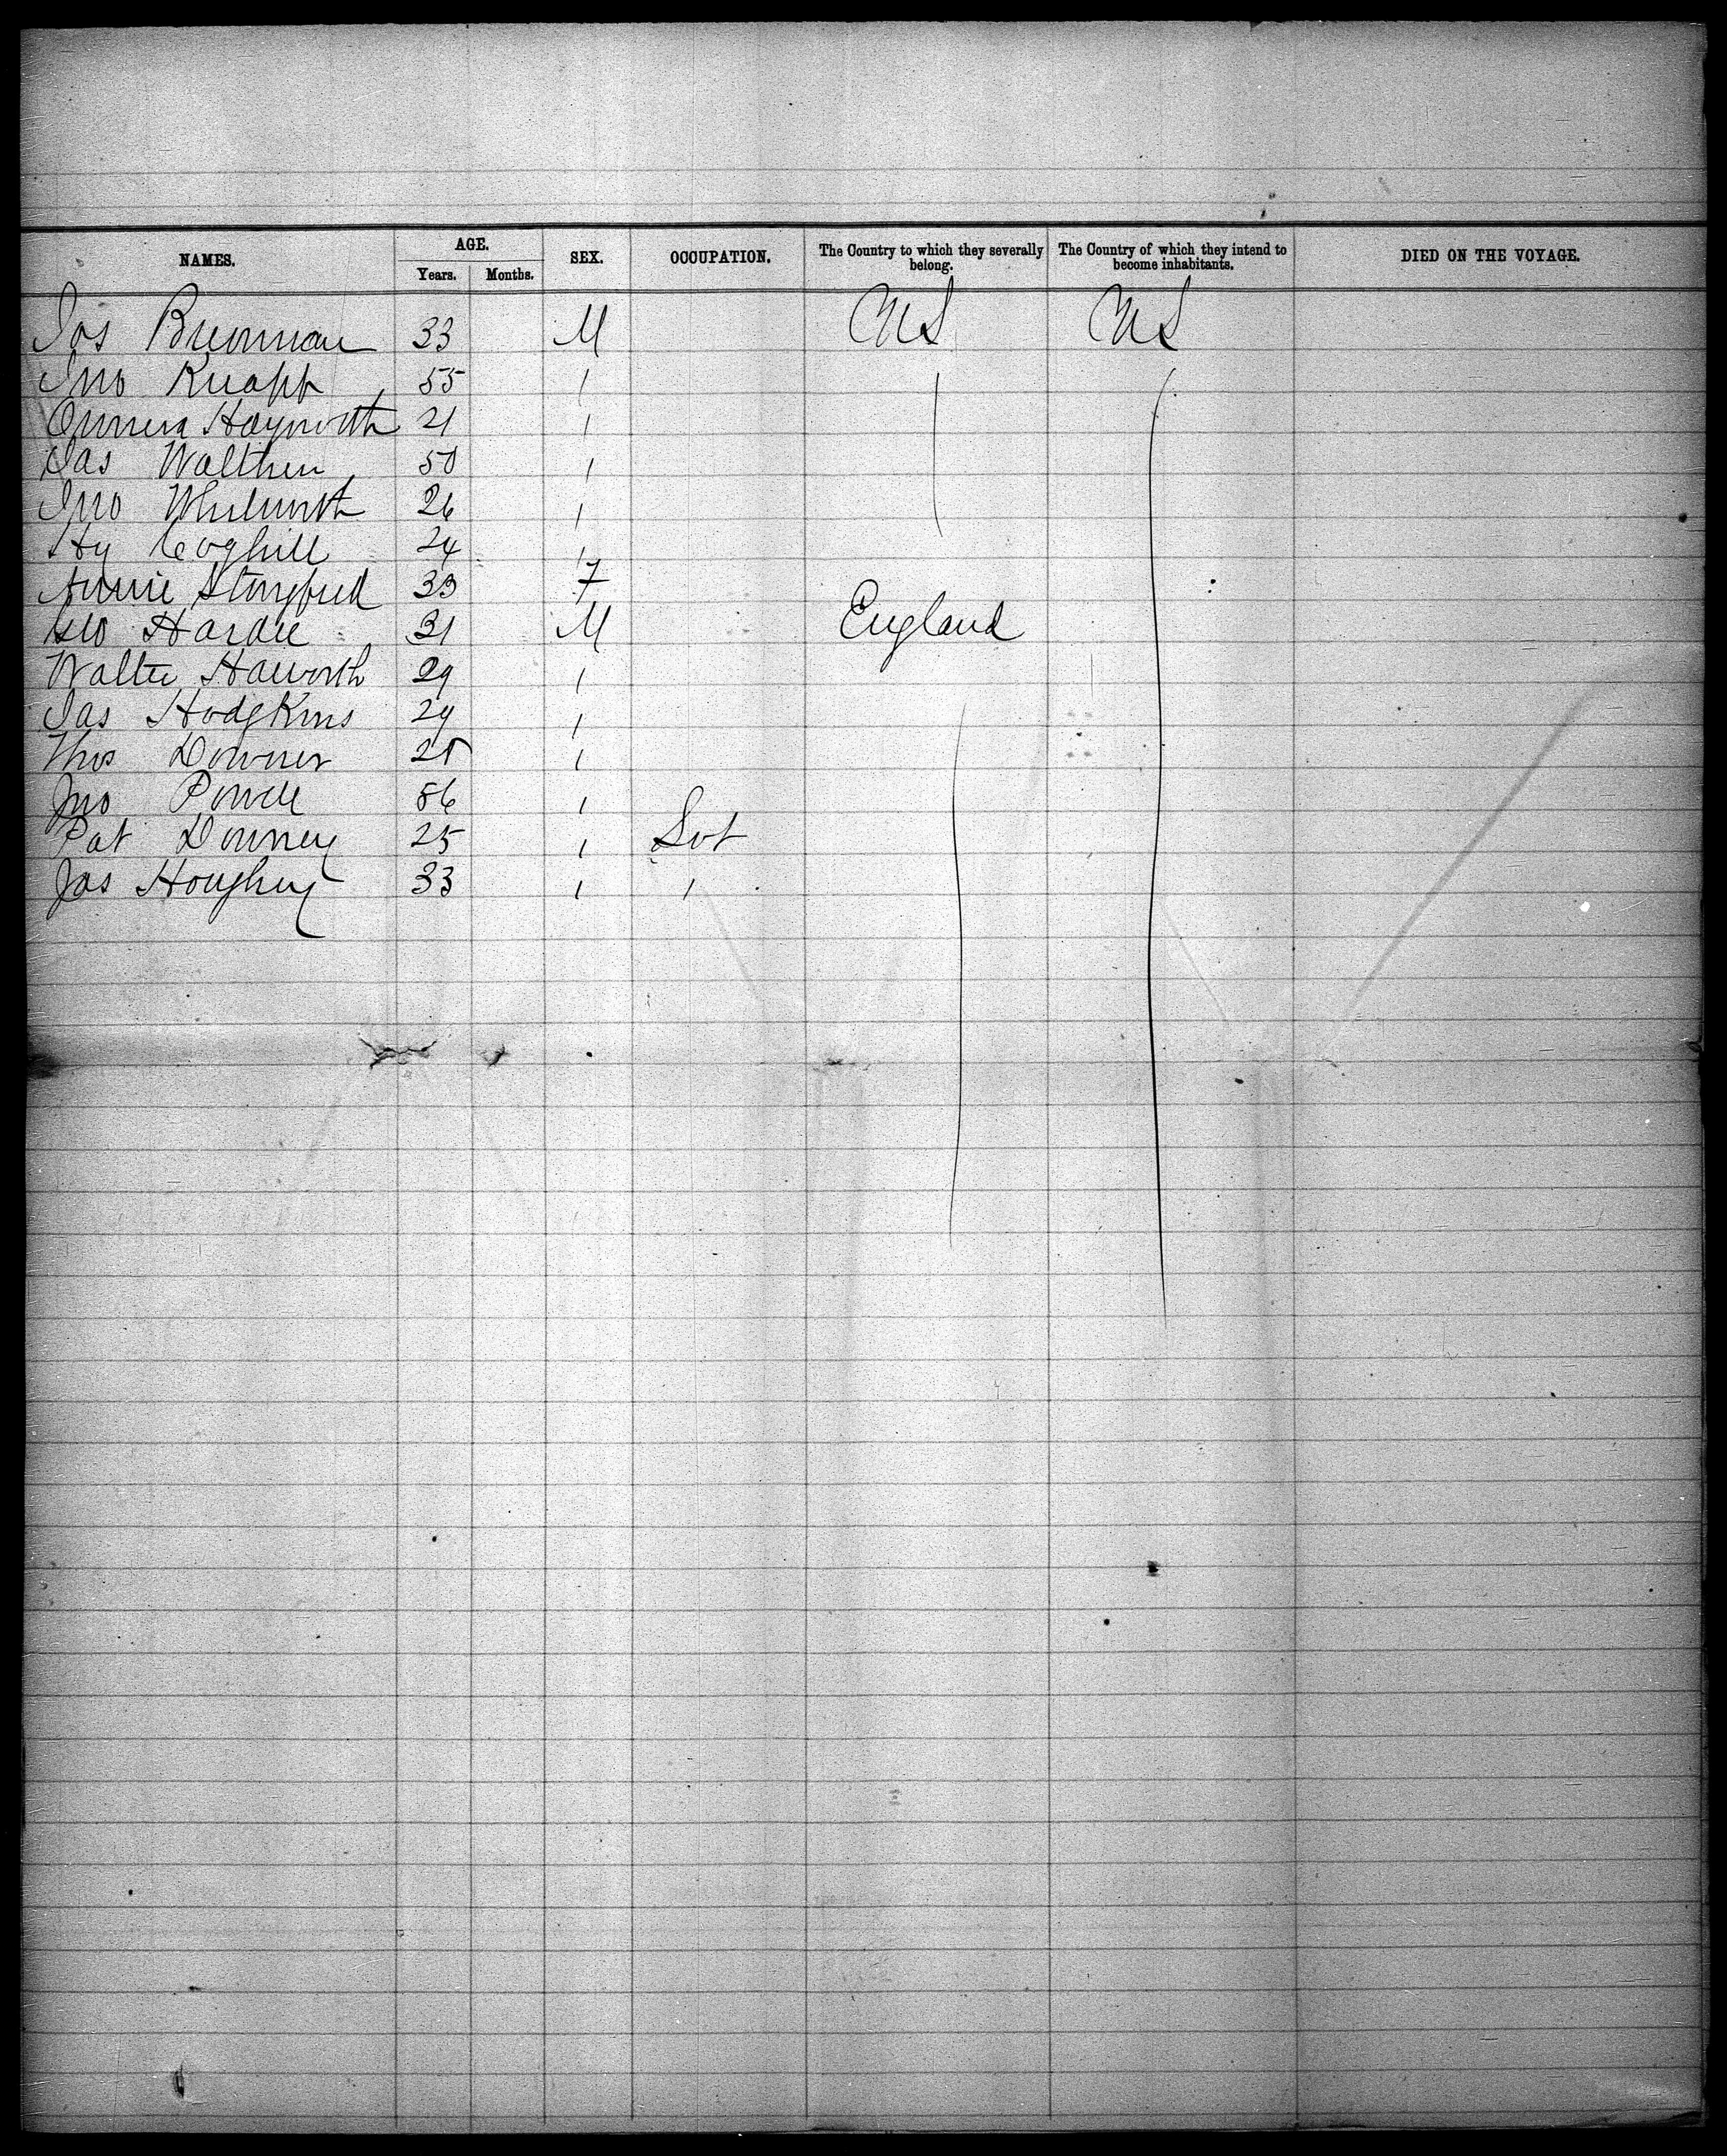 NAMES. AGE. SEX. OCCUPATION. The Country to which they severally belong. The Country of which they intend to become inhabitants. DIED ON THE VOYAGE.
Years. Months.
Jos Brennan 33 M US US
Jno Knapp 55 /
Hayworth 21 /
Jas 50 /
Jno 26 /
Hy Coghill 24 /
Annie 33 F
Geo Hardie 31 M England
Walter Haworth 29 /
Jas Hodgkins 29 /
Thos Downer /
Jno 56 /
Pat Downey 25 /
Jas Houghey 33 / /